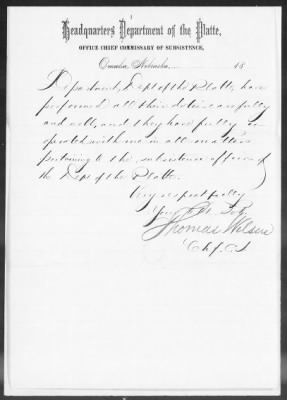 Headquarters Department of the Platte,
OFFICE CHIEF COMMISSARY OF SUBSISTENCE,
Omaha, Nebraska, 18
Department, Dept of the Platte, have
performed all their duties carefully
and well, and they have fully co
operated with me in all matters
pertaining to the subsistence affairs of
the Dept of the Platte.
Very respectfully
Your Obt. Svt
Thomas Wilson
C.S.